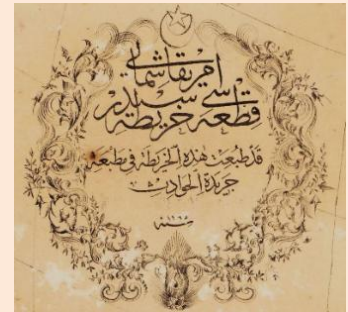 امريقا شمالى
قطعه سى خريطه سيدر
قد طبعت هذه الخريطة فى مطبعة
جريدة الحوادث
سنة ١٢٦٨